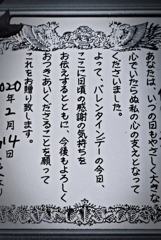 あなたは、いつの日もやさしく大きな
心でいたらぬ私の心の支えとなって
くださいました。
よって、バレンタインデーの今日、
ここに日頃の感謝の気持ちを
お伝えするとともに、今後もよろしく
おつきあいくださることを願って
これをお贈り致します。
2020年2月14日